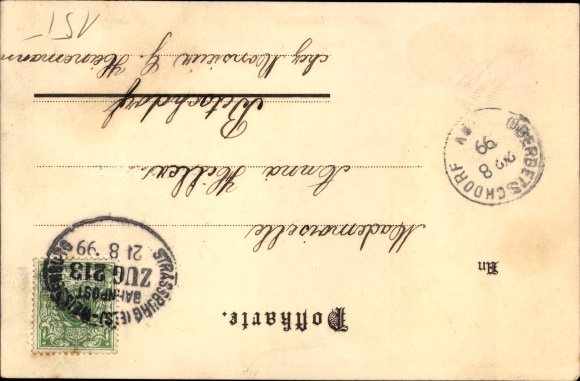 Postkarte.
An
Mademoiselle
Anna Hiller
Betschdorf
chez Monsieur G. Heinemann
151
STRASSBURG (ELS)
BAHNPOST
ZUG 213
21 8 99
OBERBETSCHDORF
22 8 99